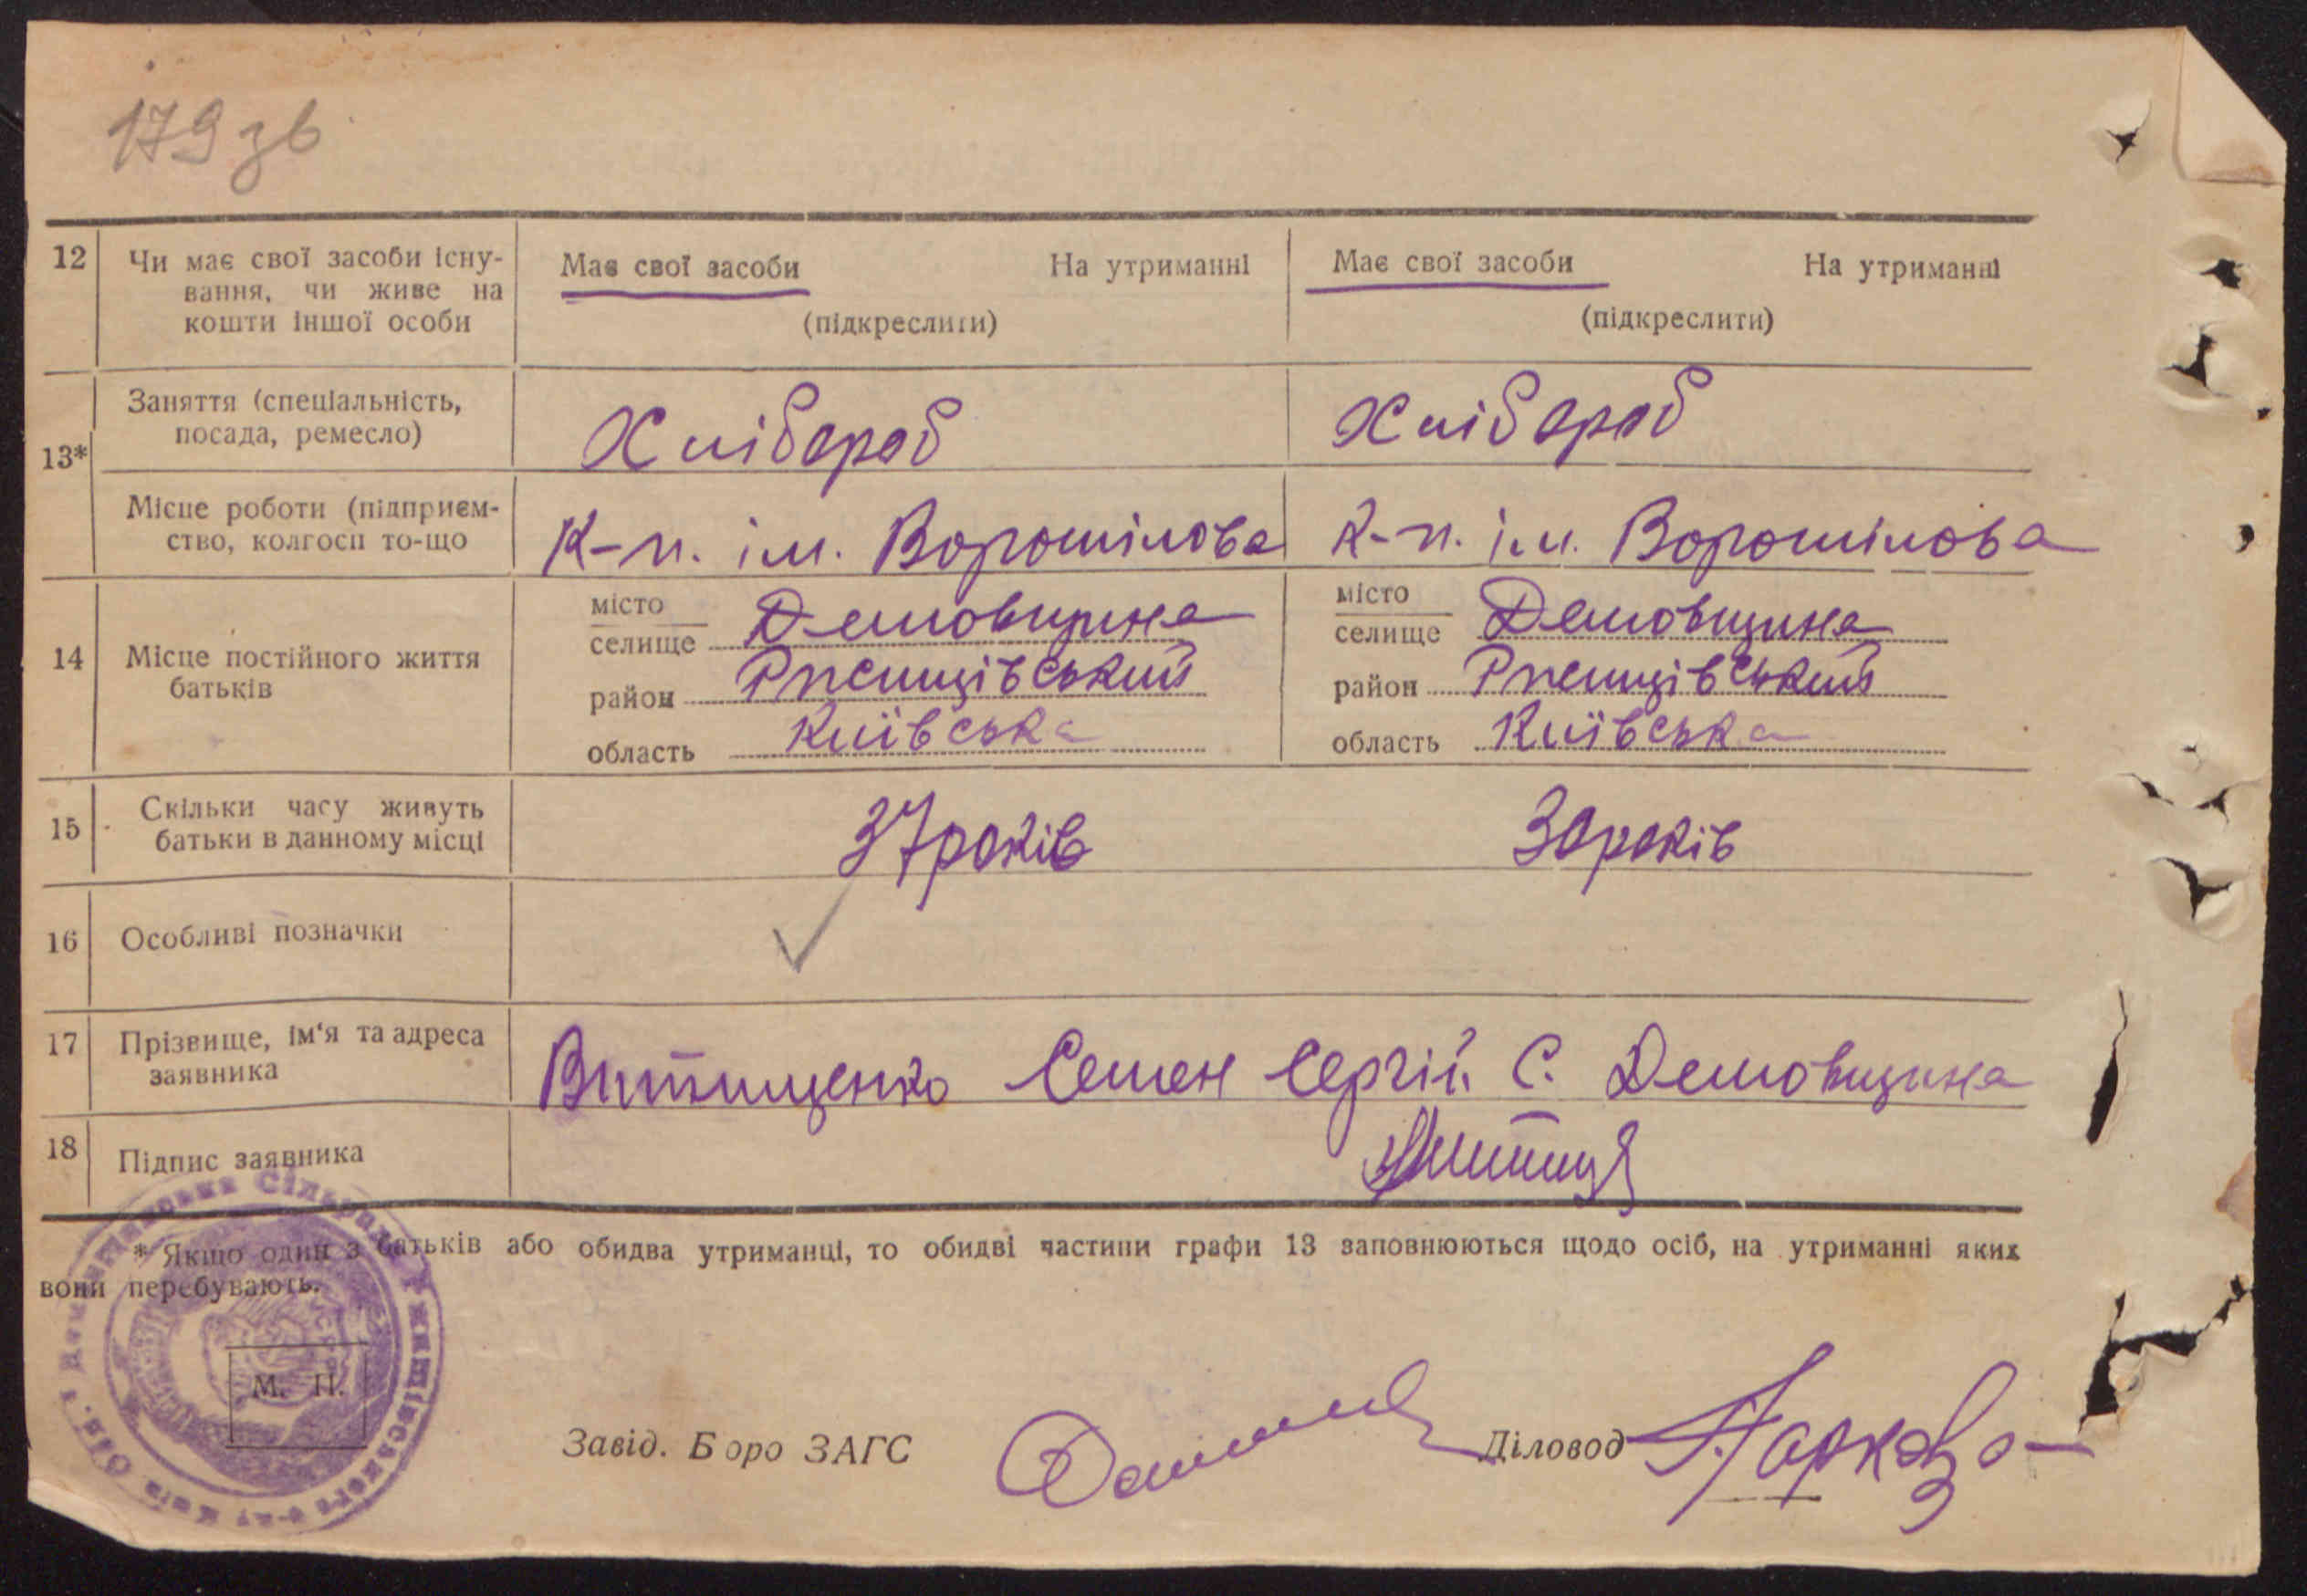 179 зв
12 Чи має свої засоби існу-
вання, чи живе на
кошти іншої особи
Має свої засоби На утриманні
(підкреслити)
Має свої засоби На утриманні
(підкреслити)
13*
Заняття (спеціальність,
посада, ремесло)
Хлібороб
Хлібороб
Місце роботи (підприєм-
ство, колгосп то-що
К-п. ім. Ворошілова
К-п. ім. Ворошілова
14 Місце постійного життя
батьків
місто
селище Демовщина
район Ржищівський
область Київська
місто
селище Демовщина
район Ржищівський
область Київська
15 Скільки часу живуть
батьки в данному місці
37 років
30 років
16 Особливі позначки
17 Прізвище, ім'я та адреса
заявника
Витищенко Семен Сергій. С. Демовщина
18 Підпис заявника
* Якщо один з батьків або обидва утриманці, то обидві частини графи 13 заповнюються щодо осіб, на утриманні яких
вони перебувають.
М. П.
Завід. Бюро ЗАГС
Діловод